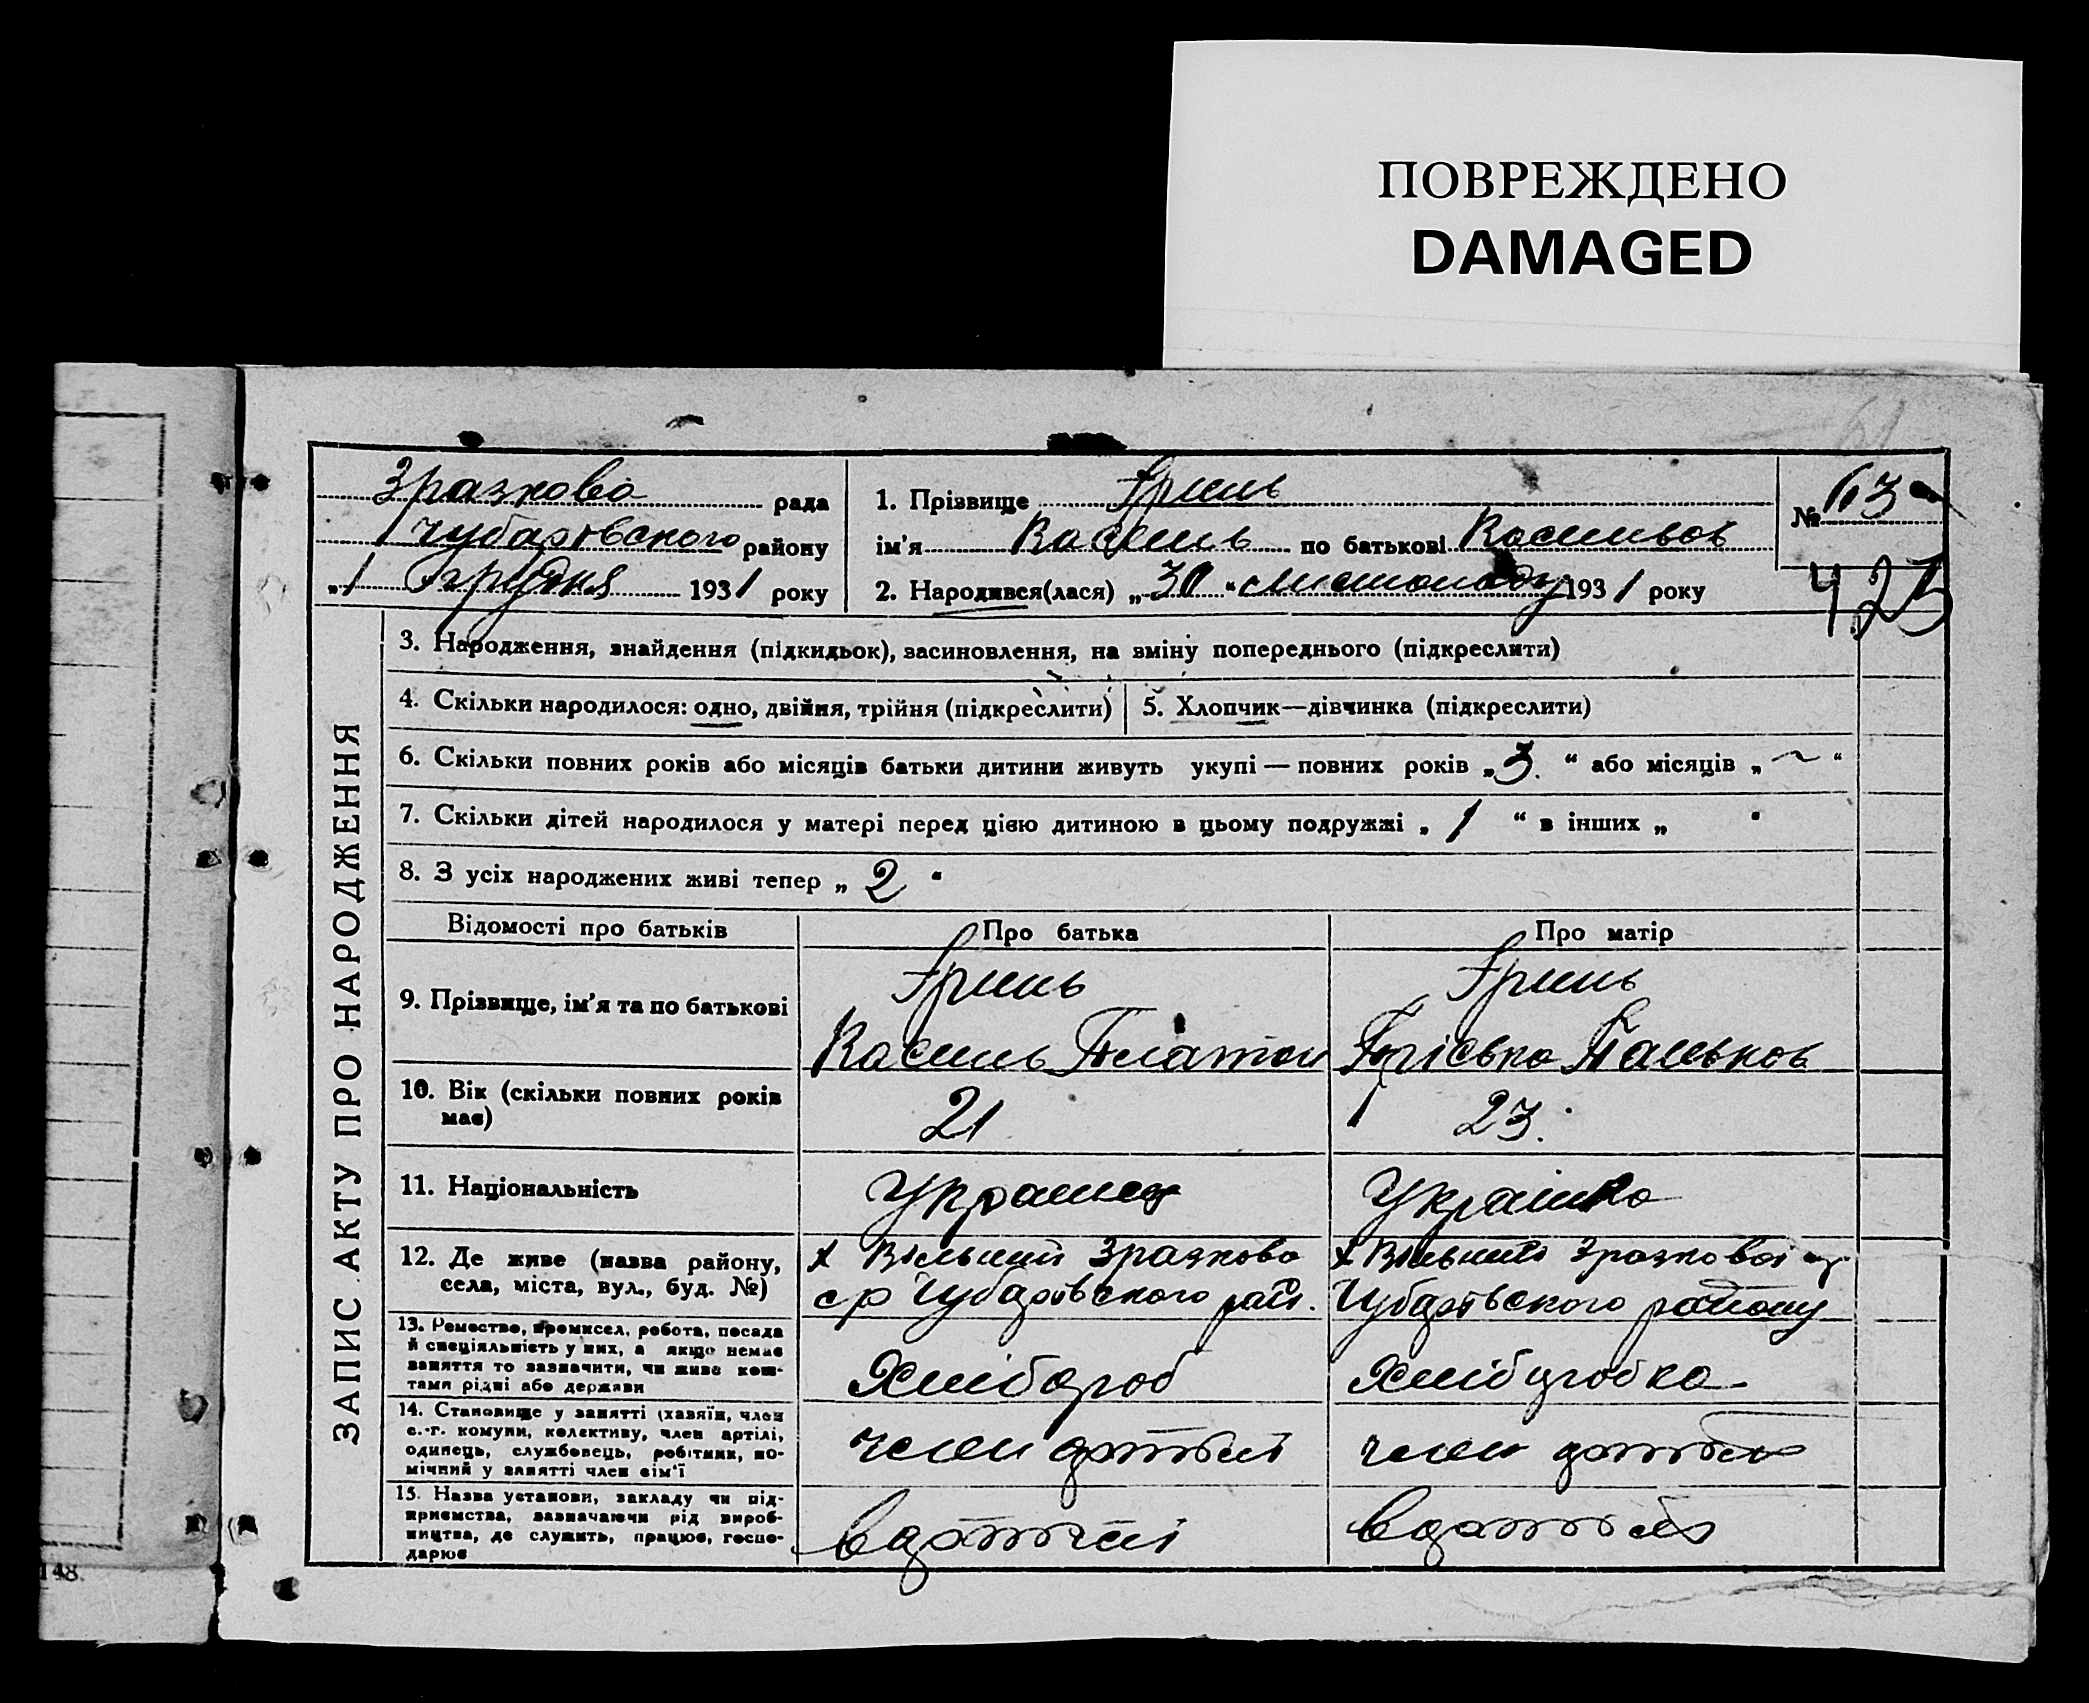 ПОВРЕЖДЕНО
DAMAGED
Зразкова рада
Чубарівського району
„1 грудня 1931 року
1. Прізвище Гринь
ім'я Василь по батькові Васильов
2. Народився(лася) „30“ листопаду 1931 року
№ 63
423
ЗАПИС АКТУ ПРО НАРОДЖЕННЯ
3. Народження, знайдення (підкидьок), засиновлення, на зміну попереднього (підкреслити)
4. Скільки народилося: одно, двійня, трійня (підкреслити)
5. Хлопчик—дівчинка (підкреслити)
6. Скільки повних років або місяців батьки дитини живуть укупі — повних років „3“ або місяців „~“
7. Скільки дітей народилося у матері перед цією дитиною в цьому подружжі „1“ в інших „ “
8. З усіх народжених живі тепер „2“
Відомості про батьків Про батька Про матір
9. Прізвище, ім'я та по батькові
Гринь
Василь Платон
Гринь
Паньков
10. Вік (скільки повних років має)
21
23
11. Національність
Українец
Українка
12. Де живе (назва району,
села, міста, вул., буд. №)
х Вільний Зразкова
с р Чубарівського рай.
х Вільний Зразковоі ср
Чубарівського району
13. Ремество, промисел, робота, посада
й спеціяльність у них, а якщо немає
заняття то зазначити, чи живе кош-
тами рідні або держави
Хлібороб
Хліборобка
14. Становище у занятті (хазяїн, член
с.-г. комуни, колективу, член артілі,
одинець, службовець, робітник, по-
мічний у занятті член сім'ї
член артілі
член артілі
15. Назва установи, закладу чи під-
приємства, зазначаючи рід вироб-
ництва, де служить, працює, госпо-
дарює
в артілі
в артілі
148.